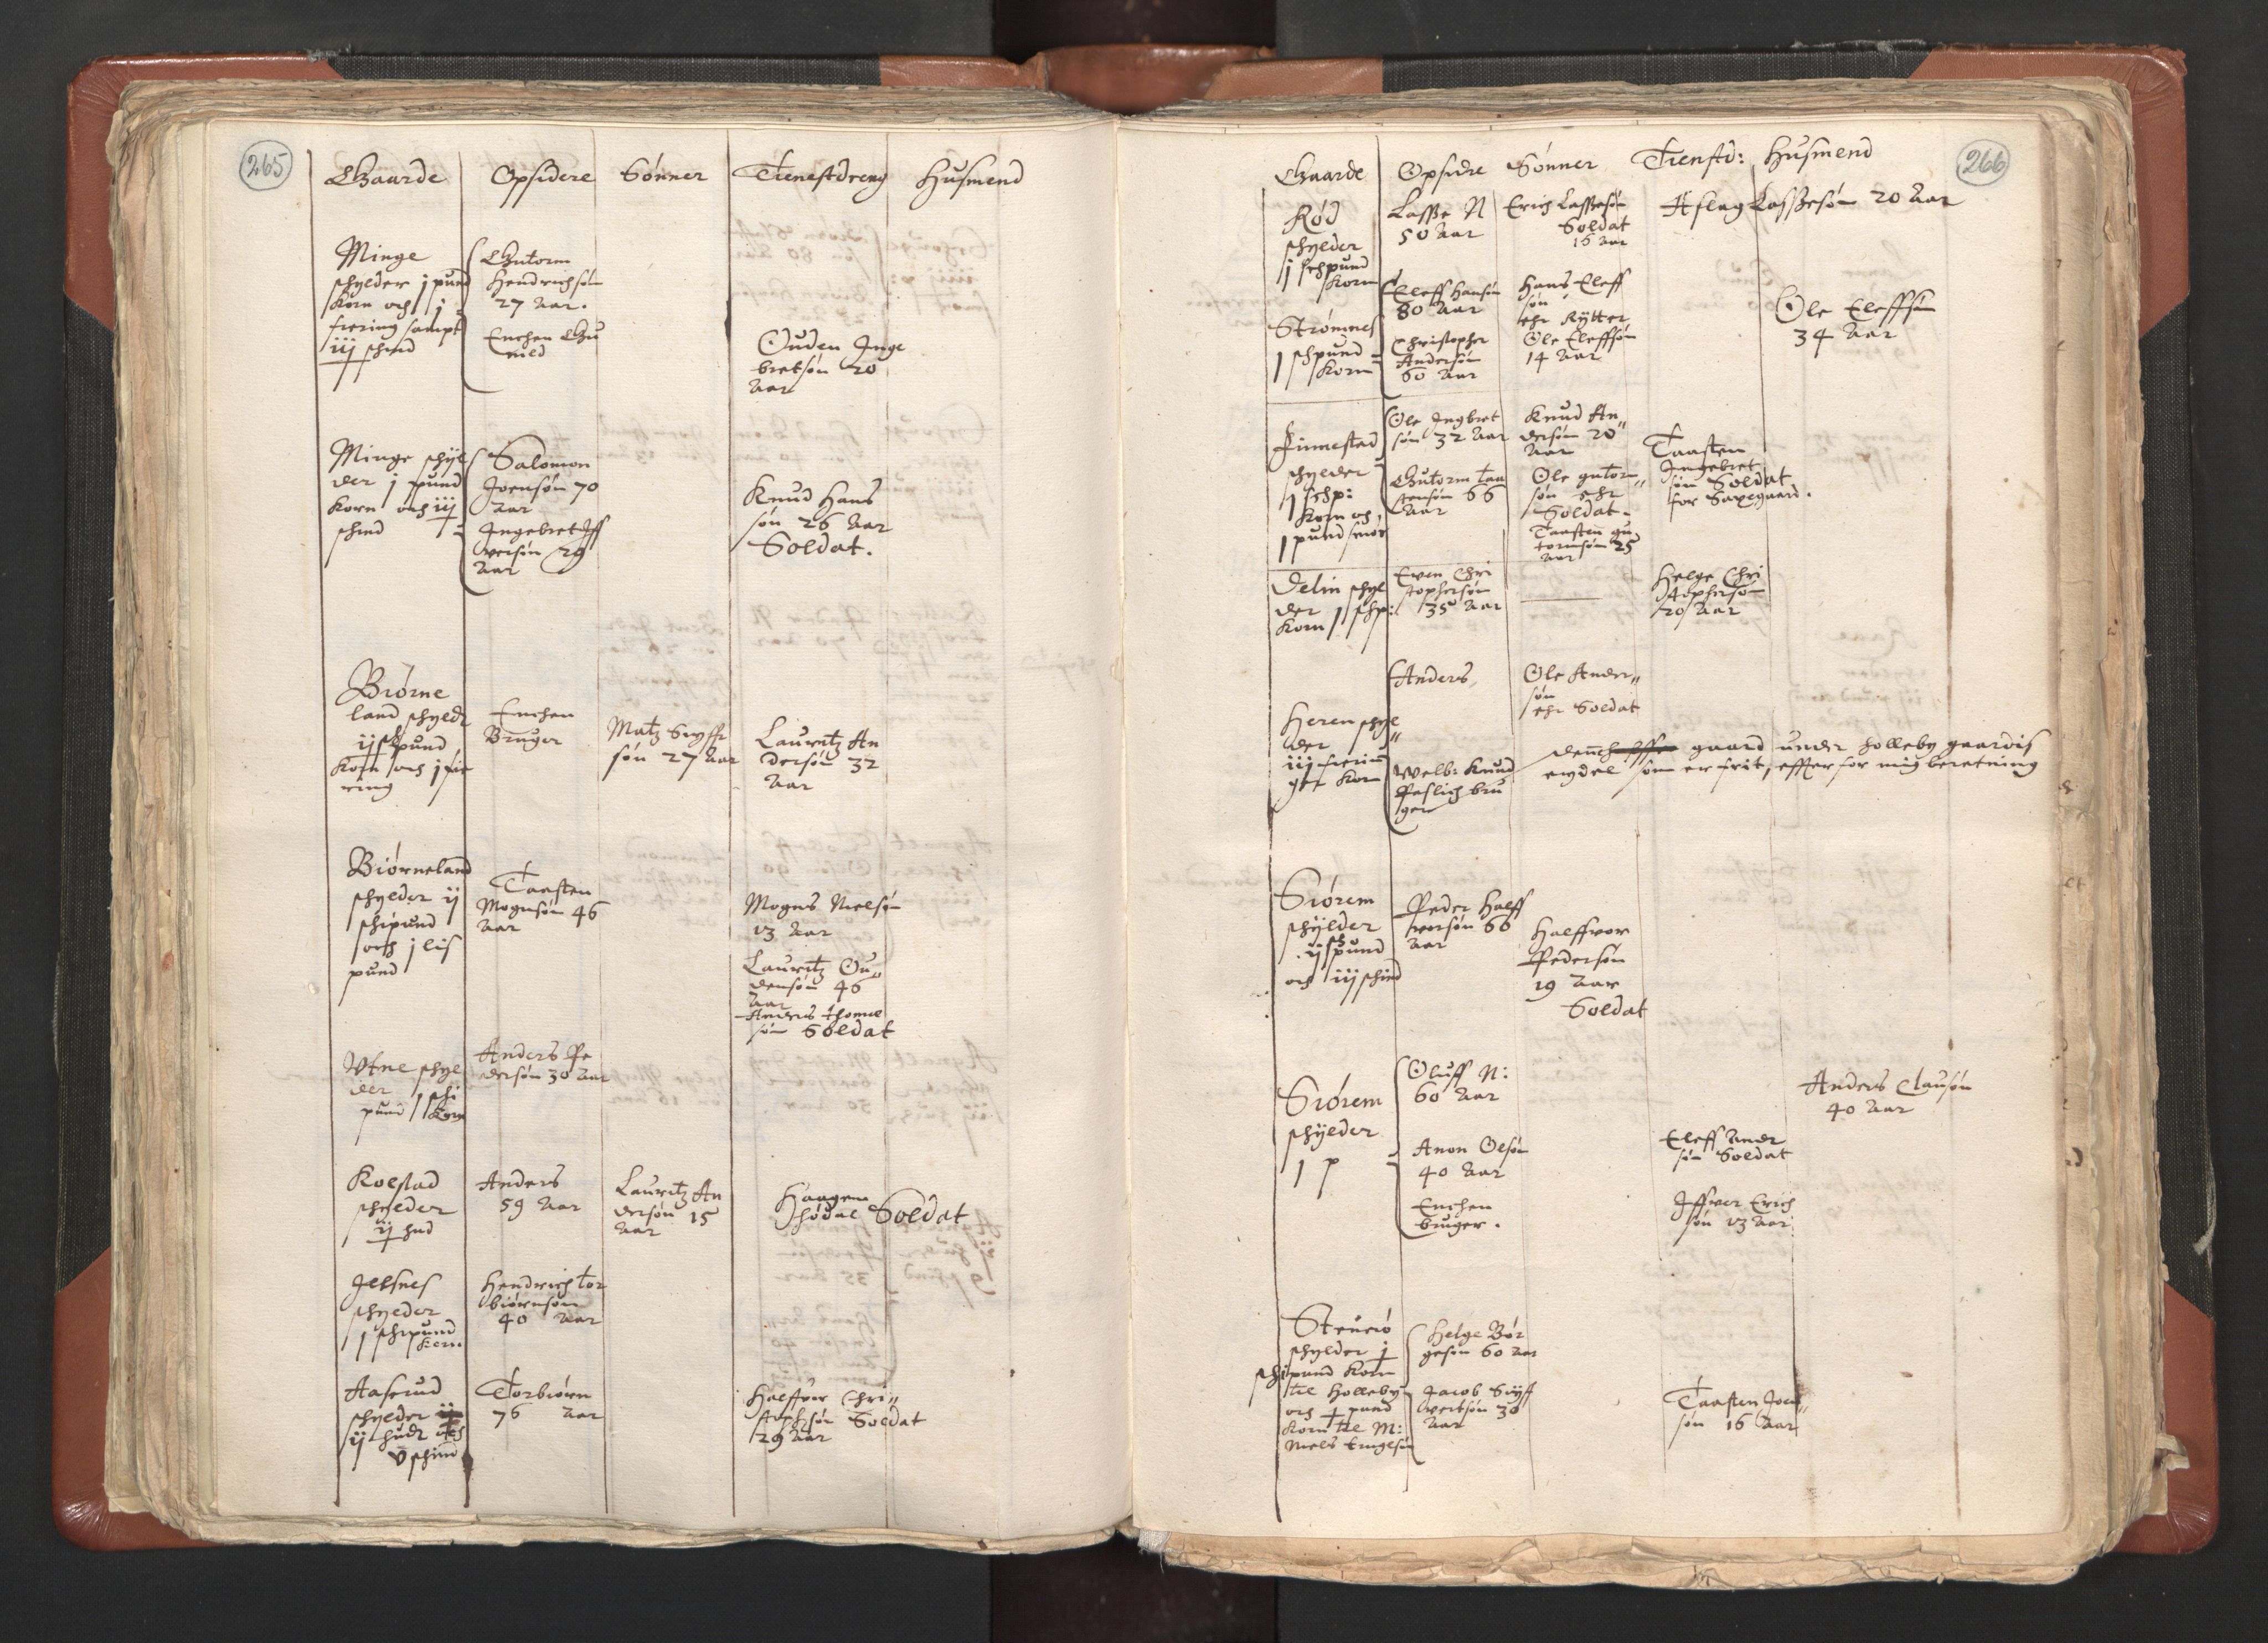 265
Gaarde Opsidere Sønner Tienestdreng Husmend
Minge
schylder j pund
Korn och j
fiering sampt
iij schind
Gutorm
Hendrichsøn
27 Aar.
Enchen Gu
nild
Ouden Inge
bretsøn 20
Aar
Minge schyl
der j pund
Korn och iij
schind
Salomon
Joensøn 70
Aar
Ingebret Iff
versøn 29
Aar
Knud Hans
søn 26 Aar
Soldat.
Biørne
land schyldr
ij schpund
Korn och j fie
ring
Enchen
Bruger
Matz Siuffr
søn 27 Aar
Lauritz An
dersøn 32
Aar
Biørneland
schylder ij
schipund
och j lis
pund
Taasten
Mognsøn 46
Aar
Mogns Nielsøn
23 Aar
Lauritz Ou
densøn 46
Aar
Anders Thome
søn Soldat
Vtne schyl
der 1 schi
pund Korn
Anders Pe
dersøn 30 Aar
Kolstad
schylder
ij hud
Anders
59 Aar
Lauritz An
dersøn 15
Aar
Haagen
Soldat
Jelsnes
schylder
1 schipund
Korn
Hendrich Tor
biørnsøn
40 Aar
Aaserud
schylder
ij hudr och
v schind
Torbiørn
76 Aar
Halffuor Chri
stophersøn Soldat
29 Aar
266
Gaarde Opsidre Sønner Tienstd: Husmend
Rød
schylder
j schpund
Korn
Lasse N
50 Aar
Erich Lassesøn
Soldat
16 Aar
Aslag Lassesøn 20 Aar
Strømnes
1 schpund
Korn
Eleff Hansøn
80 Aar
Christopher
Andersøn
60 Aar
Hans Eleff
søn
ehr Rytter
Ole Eleffsøn
14 Aar
Ole Eleffsøn
34 Aar
Finnestad
schylder
1 schp:
Korn och
1 pund smør
Ole Ingbret
søn 32 Aar
Gutorm Taa
stensøn 66
Aar
Knud An
dersøn 20
Aar
Ole gutorm
søn ehr
Soldat.
Taasten gu
tormsøn 25
Aar
Taasten
Ingebret
søn Soldat
for Saxegaard.
Delin schyl
der 1 schp:
Korn
Even Chri
stophersøn
35 Aar
Helge Chri
stophersøn
20 Aar
Heren schyl
der
iij fierin
gr Korn
Anders
Welb: Knud
bru
ger
Ole Ander
søn
ehr Soldat
gaard under Holleby gaardis
eydel som er frit, effter for mig beretning
Siørem
schylder
ij schpund
och iij schind
Peder Halff
vorsøn 66
Aar
Halffvor
Pedersøn
19 Aar
Soldat
Siørem
schylder
1 p
Oluff N:
60 Aar
Anon Olsøn
40 Aar
Enchen
bruger.
Eleff Andr
søn Soldat
Iffver Erich
søn 23 Aar
Anders Clausøn
40 Aar
schylder j
schipund Korn
til Holleby
och pund
Korn til M:
Niels Engelsøn
Helge Bør
gesøn 60 Aar
Jacob Siuff
vertsøn 30
Aar
Taasten Joen
søn 16 Aar